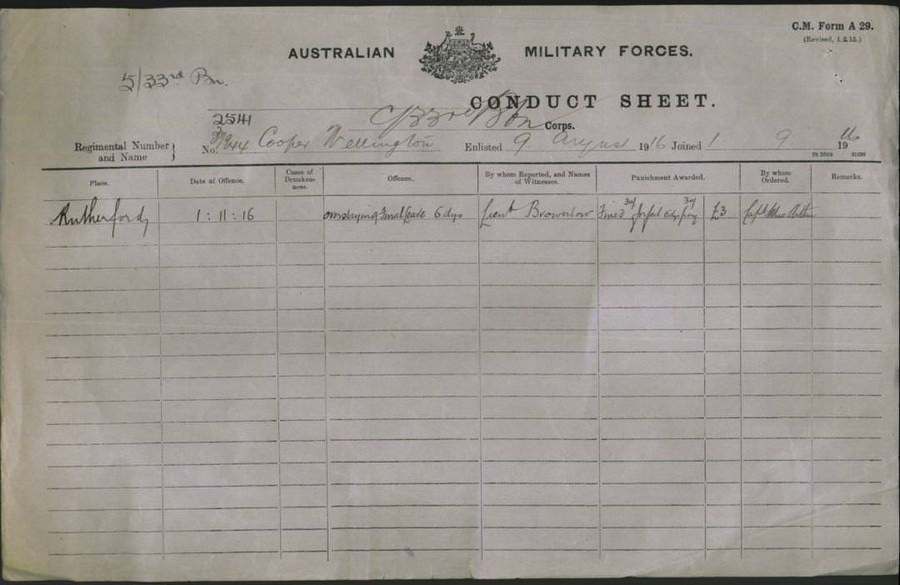 C.M. Form A 29.
AUSTRALIAN MILITARY FORCES.
5/33rd Bn.
CONDUCT SHEET.
2541
Corps.
Regimental Number and Name } No. Cooper Wellington Enlisted 9 August 1916 Joined 1 9 1916
Place. Date of Offence. Cases of Drunkenness. Offence. By whom Reported, and Names of Witnesses. Punishment Awarded. By whom Ordered. Remarks.
Rutherford 1:11:16 final leave 6 dys Lieut Brownlow Fined £3